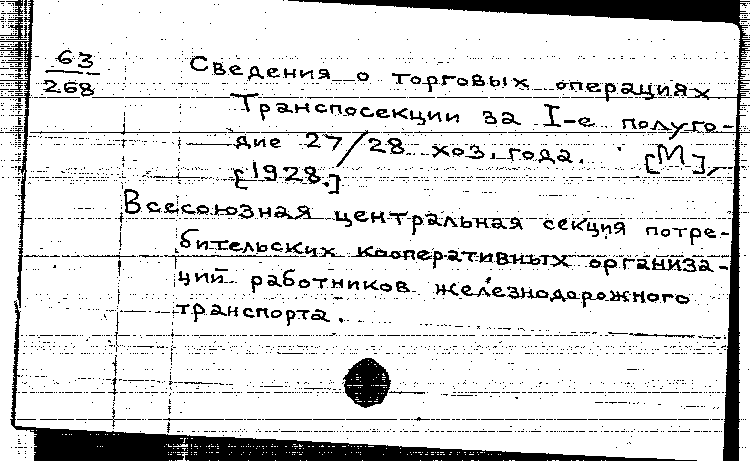 63
268
Сведения о торговых операциях
Транспосекции за I-е полуго-
дие 27/28 хоз. года. [М],
[1928.]
Всесоюзная центральная секция потре-
бительских кооперативных организа-
ций работников железнодорожного
транспорта.